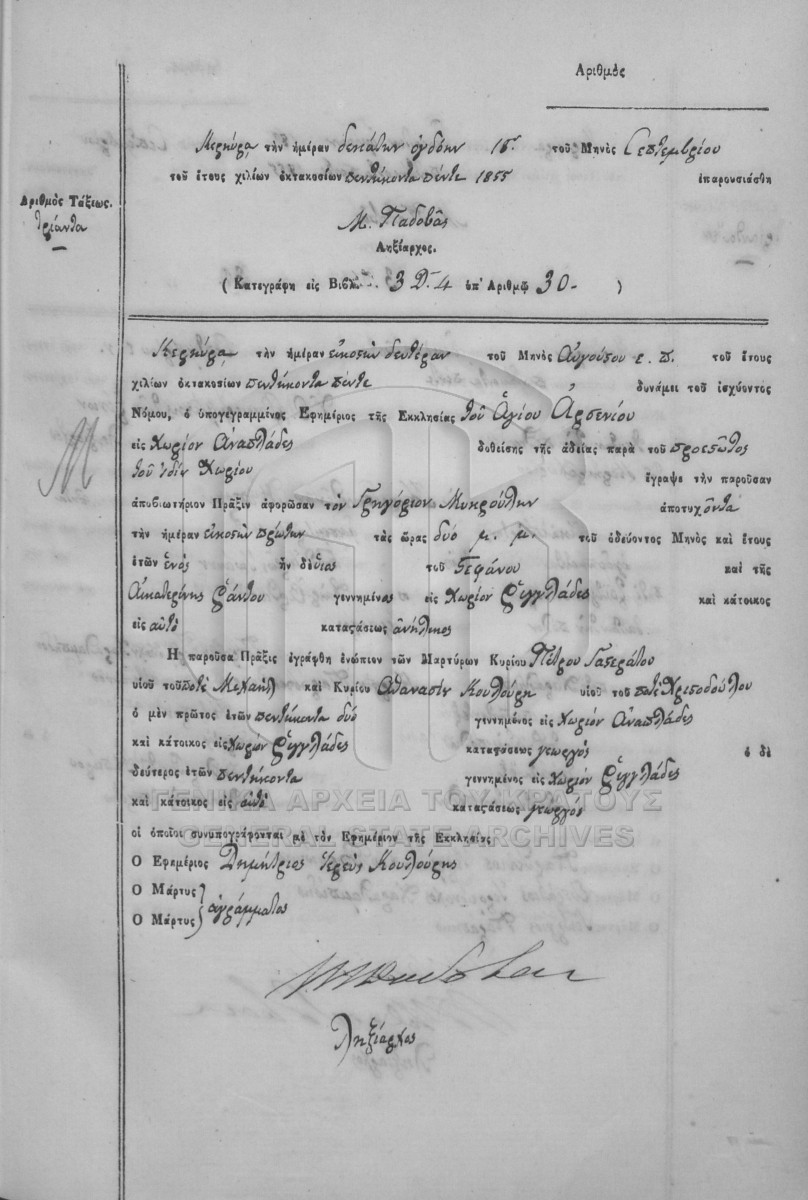 Ἀριθμὸς
Κερκύρα τὴν ἡμέραν δεκάτην ὀγδόην 18ην τοῦ Μηνὸς Σεπτεμβρίου
τοῦ ἔτους χιλίων ὀκτακοσίων πεντήκοντα πέντε 1855 ἐπαρουσιάσθη
Ἀριθμὸς Τάξεως.
τριάντα
Μ. Παδοβᾶς
Ληξίαρχος.
( Κατεγράφη εἰς Βιβλ. 3 Δ. 4 ὑπ' Ἀριθμῷ 30 - )
Κερκύρα τὴν ἡμέραν εἰκοστὴν δευτέραν τοῦ Μηνὸς Αὐγούστου ε. π. τοῦ ἔτους
χιλίων ὀκτακοσίων πεντήκοντα πέντε δυνάμει τοῦ ἰσχύοντος
Νόμου, ὁ ὑπογεγραμμένος Ἐφημέριος τῆς Ἐκκλησίας τοῦ Ἁγίου Ἀρσενίου
εἰς Χωρίον Ἀναπλάδες δοθείσης τῆς ἀδείας παρὰ τοῦ προεστῶτος
τοῦ ἰδίου Χωρίου ἔγραψε τὴν παροῦσαν
ἀποβιωτήριον Πρᾶξιν ἀφορῶσαν τὸν Γρηγόριον ἀποτυχόντα
τὴν ἡμέραν εἰκοστὴν πρώτην τὰς ὥρας δύο μ. μ. τοῦ ὁδεύοντος Μηνὸς καὶ ἔτους
ἐτῶν ἑνὸς τοῦ Στεφάνου καὶ τῆς
Αἰκατερίνης γεννημένος εἰς Χωρίον Στρογγλάδες καὶ κάτοικος
εἰς αὐτὸ καταστάσεως ἀνήλικος
Ἡ παροῦσα Πρᾶξις ἐγράφθη ἐνώπιον τῶν Μαρτύρων Κυρίου Πέτρου Γασπαράτου
υἱοῦ τοῦ ποτὲ Μιχαὴλ καὶ Κυρίου Ἀθανασίου Κουλούρη υἱοῦ τοῦ ποτὲ Χριστοδούλου
ὁ μὲν πρῶτος ἐτῶν πεντήκοντα δύο γεννημένος εἰς Χωρίον Ἀναπλάδες
καὶ κάτοικος εἰς Χωρίον Στρογγλάδες καταστάσεως γεωργὸς ὁ δὲ
δεύτερος ἐτῶν πεντήκοντα γεννημένος εἰς Χωρίον Στρογγλάδες
καὶ κάτοικος εἰς αὐτὸ καταστάσεως γεωργὸς
οἱ ὁποῖοι συνυπογράφονται μὲ τὸν Ἐφημέριον τῆς Ἐκκλησίας
Ὁ Ἐφημέριος Δημήτριος Ἱερεὺς Κουλούρης
Ὁ Μάρτυς
ἀγράμματος
Ὁ Μάρτυς
Ληξίαρχος
ΓΕΝΙΚΑ ΑΡΧΕΙΑ ΤΟΥ ΚΡΑΤΟΥΣ
GENERAL STATE ARCHIVES